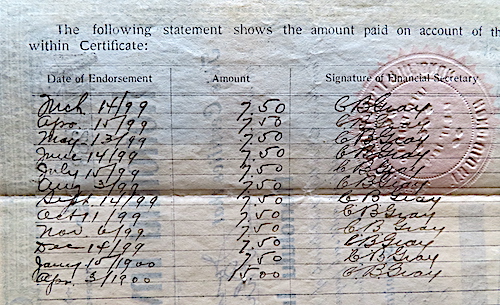 The following statement shows the amount paid on account of th
within Certificate:
Date of Endorsement Amount Signature of Financial Secretary
Mch 14/99 7.50 C B Gray
Apr 15/99 7.50 C B Gray
May 13/99 7.50 C B Gray
June 14/99 7.50 C B Gray
July 15/99 7.50 C B Gray
Aug 3/99 7.50 C B Gray
Sept 14/99 7.50 C B Gray
Oct 11/99 7.50 C B Gray
Nov 6/99 7.50 C B Gray
Dec 14/99 7.50 C B Gray
Jany 15/1900 7.50 C B Gray
Apr 3/1900 15.00 C B Gray